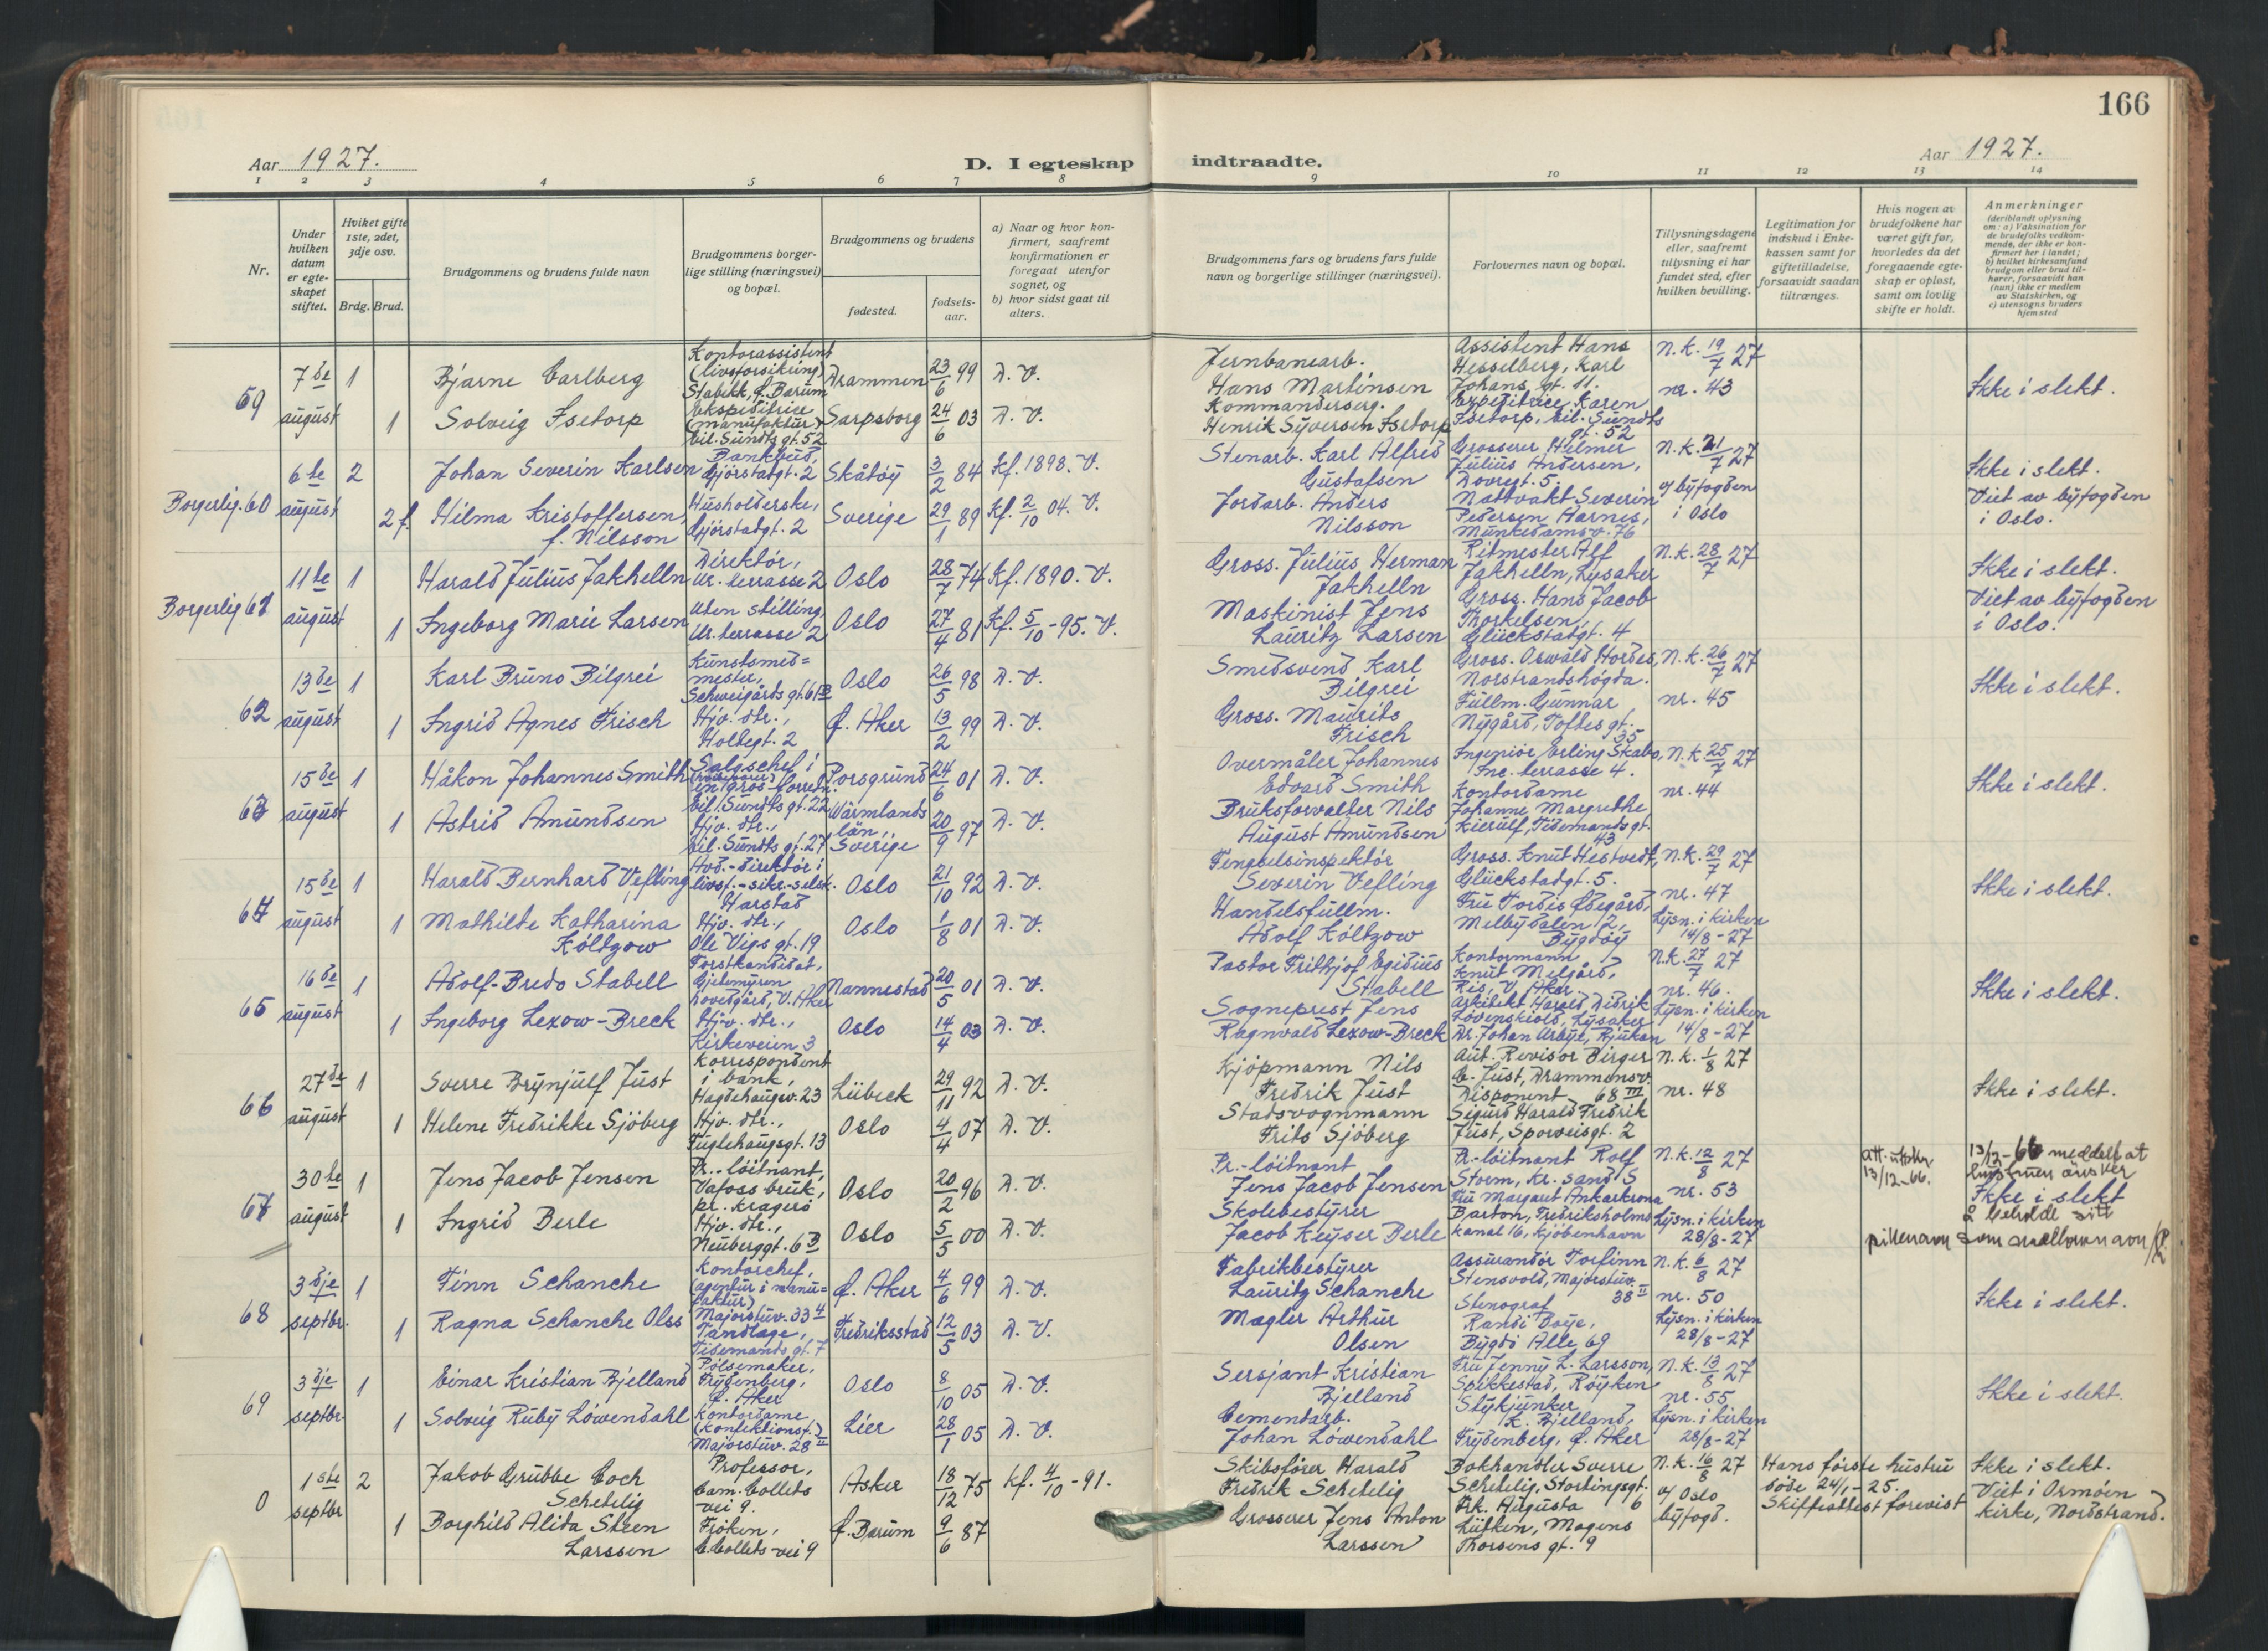 166
Aar 1927.
D. I egteskap indtraadte.
Aar 1927.
1 2 3 4 5 6 7 8 9 10 11 12 13 14
Nr.
Under hvilken datum er egteskapet stiftet.
Hviket gifte 1ste, 2det, 3dje osv.
Brdg. Brud.
Brudgommens og brudens fulde navn
Brudgommens borgerlige stilling (næringsvei) og bopæl.
Brudgommens og brudens
fødested.
fødselsaar.
a) Naar og hvor konfirmert, saafremt konfirmationen er foregaat utenfor sognet, og
b) hvor sidst gaat til alters.
Brudgommens fars og brudens fars fulde navn og borgerlige stillinger (næringsvei).
Forlovernes navn og bopæl.
Tillysningsdagene eller, saafremt tillysning ei har fundet sted, efter hvilken bevilling.
Legitimation for indskud i Enkekassen samt for giftetilladelse, forsaavidt saadan tiltrænges.
Hvis nogen av brudefolkene har været gift før, hvorledes da det foregaaende egteskap er opløst, samt om lovlig skifte er holdt.
Anmerkninger (deriblandt oplysning om: a) Vaksination for de brudefolks vedkommende, der ikke er konfirmert her i landet; b) hvilket kirkesamfund brudgom eller brud tilhører, forsaavidt han (hun) ikke er medlem av Statskirken, og c) utensogns bruders hjemsted
59
7de august
1
Bjarne Carlberg
Kontorassistent (livsforsikring) Stabekk, Ø. Bærum
Drammen
23/6 99
D. V.
Jernbanearb. Hans Martinsen
Assistent Hans Hesselberg, Karl Johans gt. 11.
N.K. 19/7 27
nr. 43
Ikke i slekt.
1
Solveig Isetorp
Ekspeditrice (manufaktur) Eil. Sundts gt. 52
Sarpsborg
24/6 03
D. V.
Kommanderserg. Henrik Syversen Isetorp
Expeditrice Karen Isetorp, Eil. Sundts gt. 52
Borgerlig. 60
6te august
2
Johan Severin Karlsen
Bankbud, Gjörstadgt. 2
Skåtöy
3/2 84
Kf. 1898. V.
Stenarb. Karl Alfred Gustafsen
Grosserer Hilmer Julius Andersen, Dovregt. 5.
N.K. 21/7 27
v/ byfogden i Oslo
Ikke i slekt.
Viet av byfogden i Oslo.
2 f.
Hilma Kristoffersen, f. Nilsson
Husholderske, Gjörstadgt. 2
Sverige
29/1 89
Kf. 2/10 04. V.
Jordarb. Anders Nilsson
Nattvakt Severin Pedersen Harnes, Munkedamsv. 76
Borgerlig 61
11te august
1
Harald Julius Jakhelln
Direktör, Ur. terrasse 2
Oslo
28/7 74
Kf. 1890. V.
Gross. Julius Herman Jakhelln
Ritmester Alf Jakhelln, Lysaker
N.K. 28/7 27
Ikke i slekt.
Viet av byfogden i Oslo.
1
Ingeborg Marie Larsen
Uten stilling, Ur. terrasse 2
Oslo
27/4 81
Kf. 5/10 - 95. V.
Maskinist Jens Lauritz Larsen
Gross. Hans Jacob Thorkelsen, Glückstadgt. 4
62
13de august
1
Karl Bruno Bilgrei
Kunstsmedmester, Schweigårds gt. 61 B
Oslo
26/5 98
D. V.
Smedsvend Karl Bilgrei
Gross. Oswald Hordes, Norstrandshögda.
N.K. 26/7 27
nr. 45
Ikke i slekt.
1
Ingrid Agnes Frisch
Hjv. dtr., Holtegt. 2
Ø. Aker
13/2 99
D. V.
Gross. Maurits Frisch
Fullm. Gunnar Nygård, Toftes gt. 35
63
15de august
1
Håkon Johannes Smith
Salgschef i en gros-forretn. Eil. Sundts gt. 22
Porsgrund
24/6 01
D. V.
Overmåler Johannes Edvard Smith
Ingeniör Erling Skabo, Inc. terrasse 4.
N.K. 25/7 27
nr. 44
Ikke i slekt.
1
Astrid Amundsen
Hjv. dtr., Eil. Sundts gt. 27
Wärmlands län, Sverige
20/9 97
D. V.
Bruksforvalter Nils August Amundsen
Kontordame Johanne Margrethe Kierulf, Tidemands gt. 43
64
15de august
1
Harald Bernhard Vefling
Avd.-direktör i livsf.-sikr.-selsk. Harstad
Oslo
21/10 92
D. V.
Fengselsinspektör Severin Vefling
Gross. Knut Hestvedt, Glückstadgt. 5.
N.K. 29/7 27
nr. 47
Ikke i slekt.
1
Mathilde Katharina Költzow
Hjv. dtr., Ole Vigs gt. 19
Oslo
1/8 01
D. V.
Handelsfullm. Adolf Költzow
Fru Tordis Ødegård, Melbydalen 2, Bygdöy
Lysn. i kirken 14/8-27
65
16de august
1
Adolf-Bredo Stabell
Forstkandidat, Gjetemyren hovedgård, V. Aker
Nannestad
20/5 01
D. V.
Pastor Frithjof Egidius Stabell
Kontormann Knut Melgård, Ris, V. Aker.
N.K. 27/7 27
nr. 46.
Ikke i slekt.
1
Ingeborg Lexow-Breck
Hjv. dtr., Kirkeveien 3
Oslo
14/4 03
D. V.
Sogneprest Jens Ragnvald Lexow-Breck
Arkitekt Harald Didrik Lövenskiold, Lysaker
Dr. Johan Arbye, Rjukan
Lysn. i kirken 14/8-27
66
27de august
1
Sverre Brynjulf Just
Korrespondent i bank, Hægdehaugsv. 23
Lübeck
29/11 92
D. V.
Kjöpmann Nils Fredrik Just
Aut. Revisor Birger C. Just, Drammensv. 68 III
N.K. 1/8 27
nr. 48
Ikke i slekt.
1
Helene Fredrikke Sjöberg
Hjv. dtr., Fuglehaugsgt. 13
Oslo
4/4 07
D. V.
Stadsvognmann Frits Sjöberg
Disponent Sigurd Harald Fredrik Just, Sporveisgt. 2
67
30te august
1
Jens Jacob Jensen
Pr.-löitnant, Vafoss bruk, pr. Kragerö
Oslo
20/2 96
D. V.
Pr.-löitnant Jens Jacob Jensen
Pr.-löitnant Rolf Storm, Kr.sand S
N.K. 12/8 27
nr. 53
att. utstkr. 13/12-66.
13/12-66 meddelt at hustruen ønsker
Ikke i slekt
å beholde sitt
pikenavn som mellomnavn
1
Ingrid Berle
Hjv. dtr., Neuberggt. 6 B
Oslo
5/5 00
D. V.
Skolebestyrer Jacob Keyser Berle
Fru Margaret Ankarkrona Barton, Fredriksholms kanal 16, Kjöbenhavn
Lysn. i kirken 28/8-27
68
3dje septbr.
1
Finn Schanche
Kontorchef, (agentur i manufaktur) Majorstuv. 33 4
Ø. Aker
4/6 99
D. V.
Fabrikbestyrer Lauritz Schanche
Assurandör Torfinn Stensvold, Majorstuv. 38 II
N.K. 6/8 27
nr. 50
Ikke i slekt.
1
Ragna Schanche Olss
Tandlæge, Tidemands gt. 7
Fredriksstad
12/5 03
D. V.
Megler Arthur Olsen
Stenograf Randi Boye, Bygdö Alle 69
Lysn. i kirken 28/8-27
69
3dje septbr
1
Einar Kristian Bjelland
Pölsemaker, Frydenberg, Ø. Aker
Oslo
8/10 05
D. V.
Sersjant Kristian Bjelland
Fru Jenny L. Larsson, Spikkestad, Röyken
N.K. 13/8 27
nr. 55
Ikke i slekt.
1
Solveig Ruby Löwendahl
Kontordame (Konfektionsf.) Majorstuv. 28 II
Lier
28/1 05
D. V.
Cementarb. Johan Löwendahl
Stykjunker K. Bjelland, Frydenberg, Ø. Aker
Lysn. i kirken 28/8-27
0
1ste septbr
2
Jakob Grubbe Coch Schetelig
Professor, Cam. Colletts vei 9.
Asker
18/12 75
Kf. 4/10 - 91.
Skibsförer Harald Fredrik Schetelig
Bokhandler Sverre Schetelig, Stortingsgt. 6
N.K. 16/8 27
v/ Oslo byfogd.
Hans förste hustru döde 24/1-25. Skifteattest forevist
Ikke i slekt.
Viet i Ormöen kirke, Nordstrand.
1
Borghild Alida Steen Larssen
Fröken, C. Colletts vei 9
Ø. Bærum
9/6 87
Grosserer Jens Anton Larssen
Frk. Augusta Lütken, Mogens Thorsens gt. 9